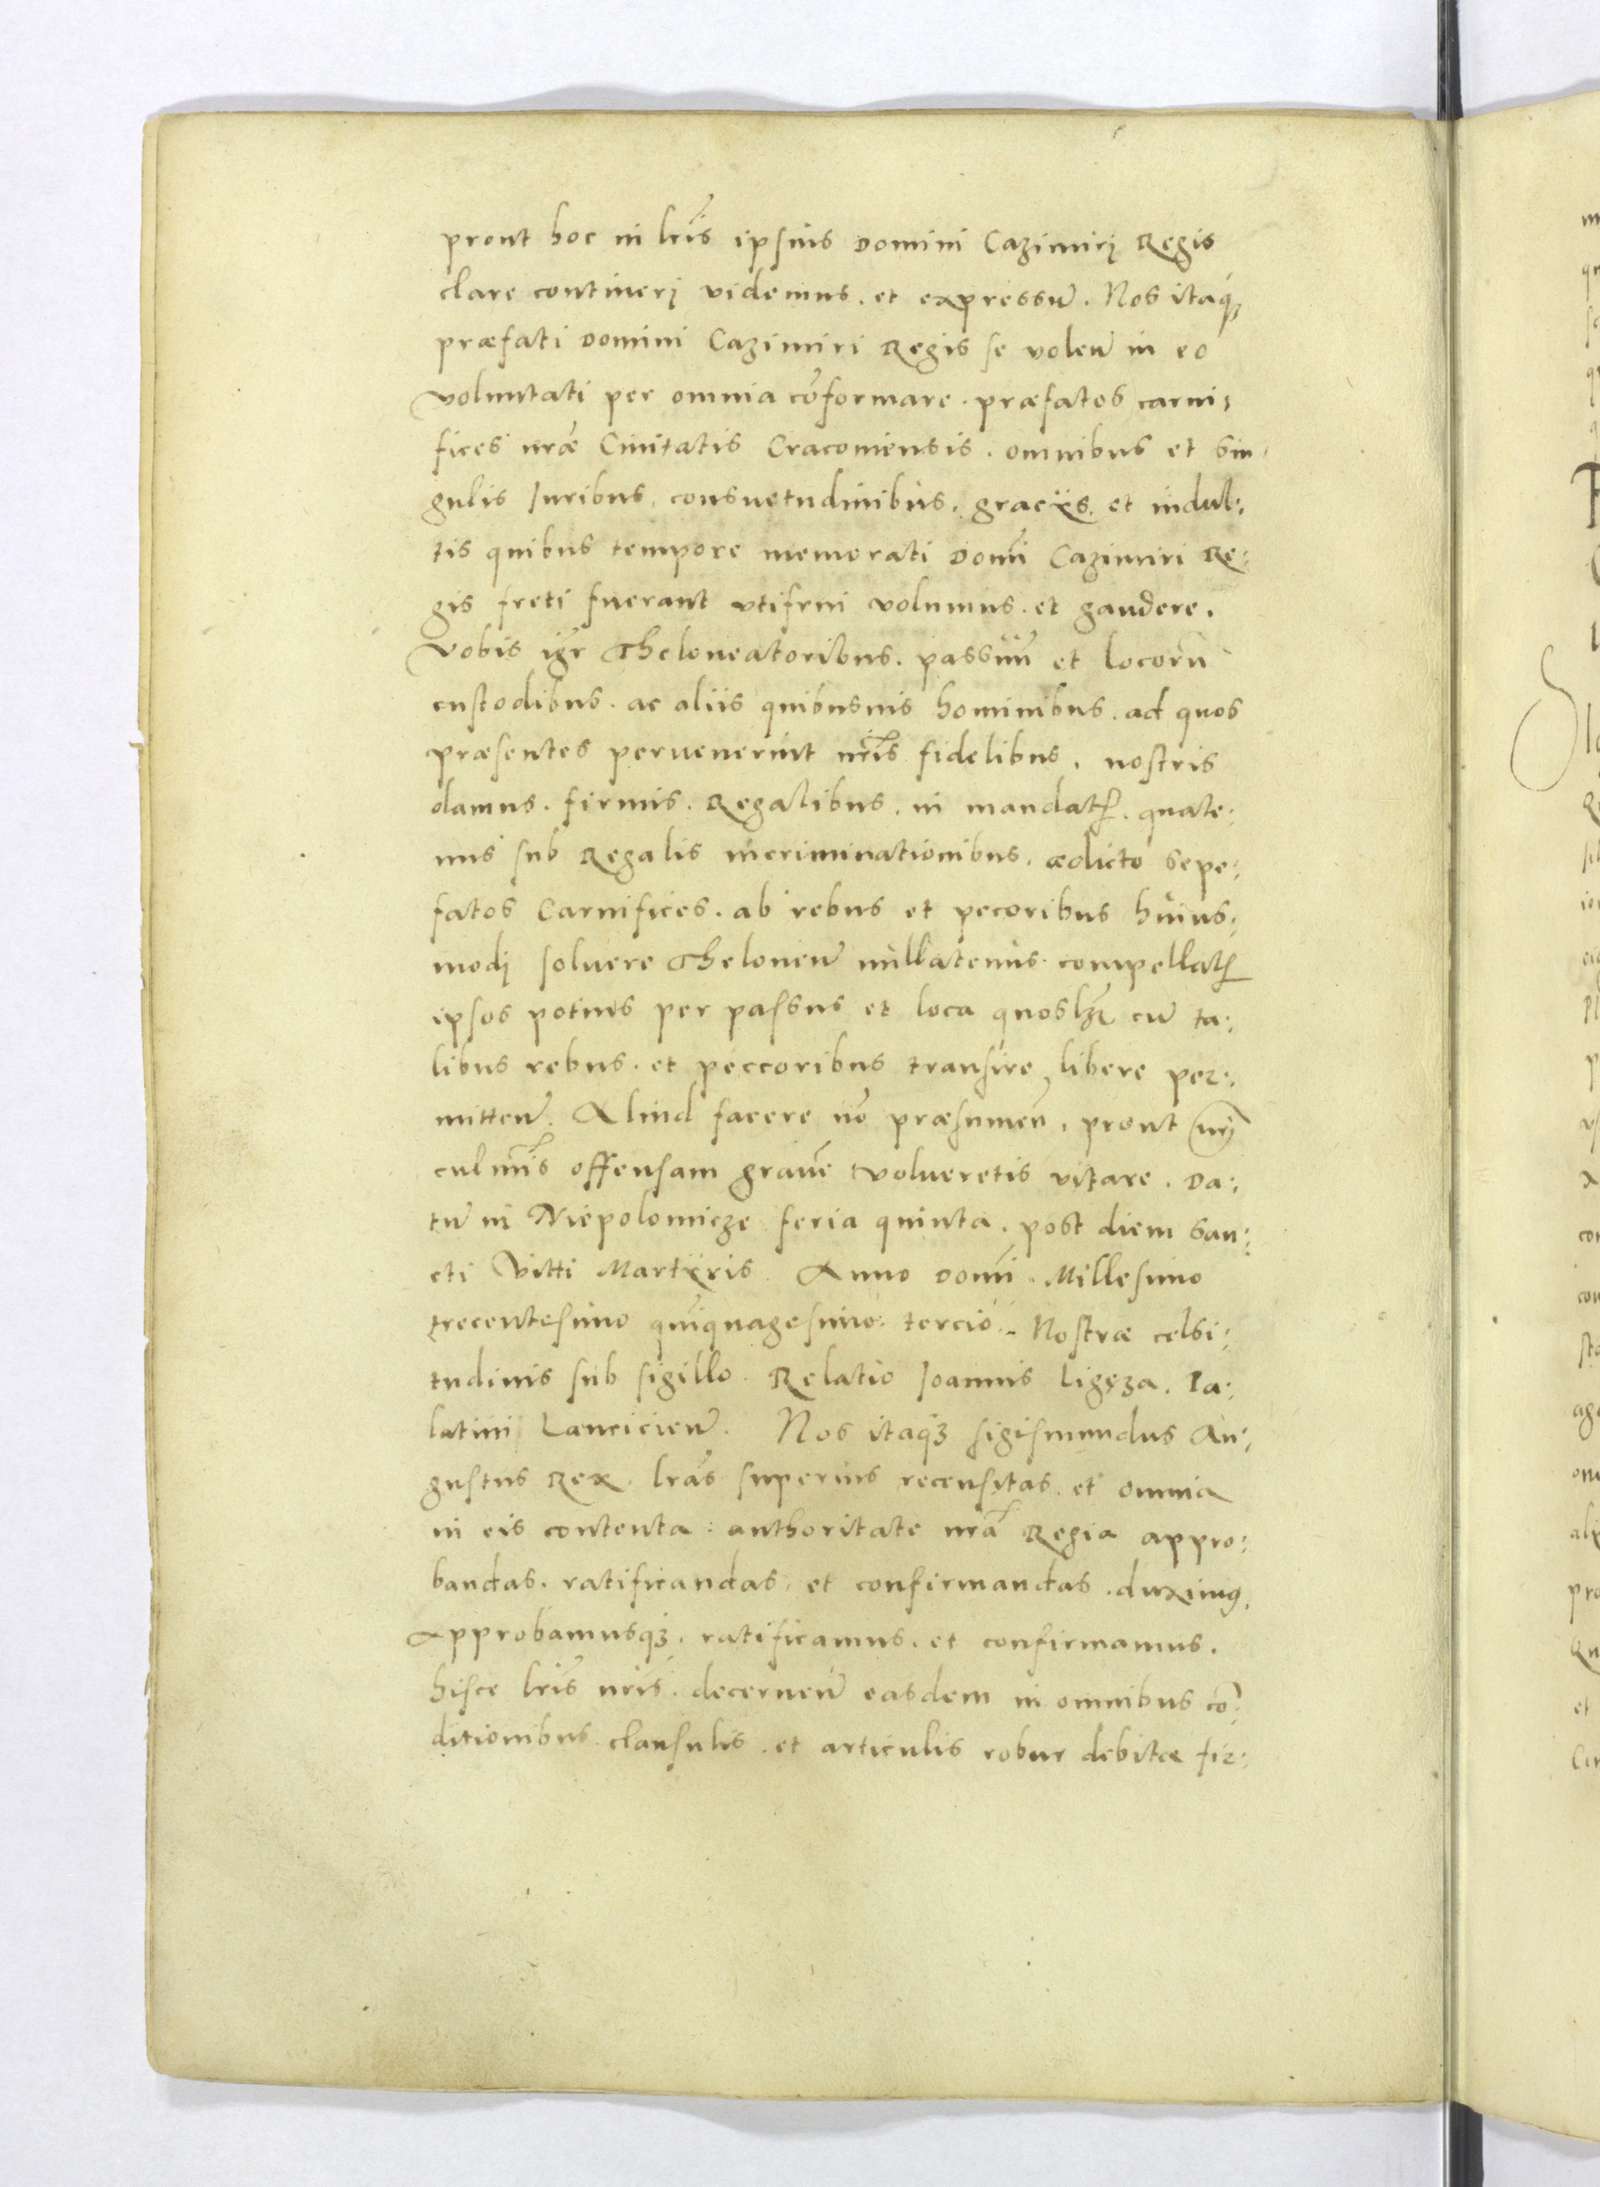 prout hoc in lr̃is ipsius Domini Cazimirj Regis
clare contineri videmus . et expressũ . Nos itaq₃
præfati Domini Cazimiri Regis se volen̄ in eo
voluntati per omnia cõformare . præfatos carni,
fices nr̃æ Ciuitatis Cracouiensis . omnibus et sin,
gulis Iuribus, consuetudinibus, gracÿs, et indul:
tis quibus tempore memorati Domĩ Cazimiri Re:
gis freti fuerant vtifrui volumus . et gaudere .
Vobis igr̃ Theloneatoribus . passuũ et locorũ
custodibus . ac aliis quibusuis hominibus . ad quos
præsentes peruenerint nr̃is fidelibus, nostris
damus . firmis . Regalibus . in mandat̃ . quate:
nus sub Regalis incriminationibus . ædicto sepe:
fatos Carnifices . ab rebus et pecoribus huius:
modj soluere Theloneũ nullatenus compellat̃
ipsos potius per passus et loca quosl₃ cũ ta:
libus rebus . et peccoribus transire libere per:
mitten̄ . Aliud facere nõ præsumen̄ , prout nr̃j
culmĩs offensam grauẽ volueretis vitare . Da:
tũ in Niepolomicze feria quinta . post diem San:
cti Vitti Martÿris . Anno Domĩ . Millesimo
trecentesimo quĩquagesimo tercio . Nostræ celsi:
tudinis sub sigillo . Relatio Ioannis Ligęza . Pa:
latini Lancicien̄ . Nos itaq₃ Sigismundus Au:
gustus Rex . lr̃as superius recensitas . et omnia
in eis contenta : authoritate nr̃a Regia appro:
bandas . ratificandas, et confirmandas . duximꝰ,
Approbamusq₃ . ratificamus . et confirmamus .
hisce lr̃is nr̃is . decernen̄ easdem in omnibus cõ:
ditionibus clausulis . et articulis robur debitæ fir: